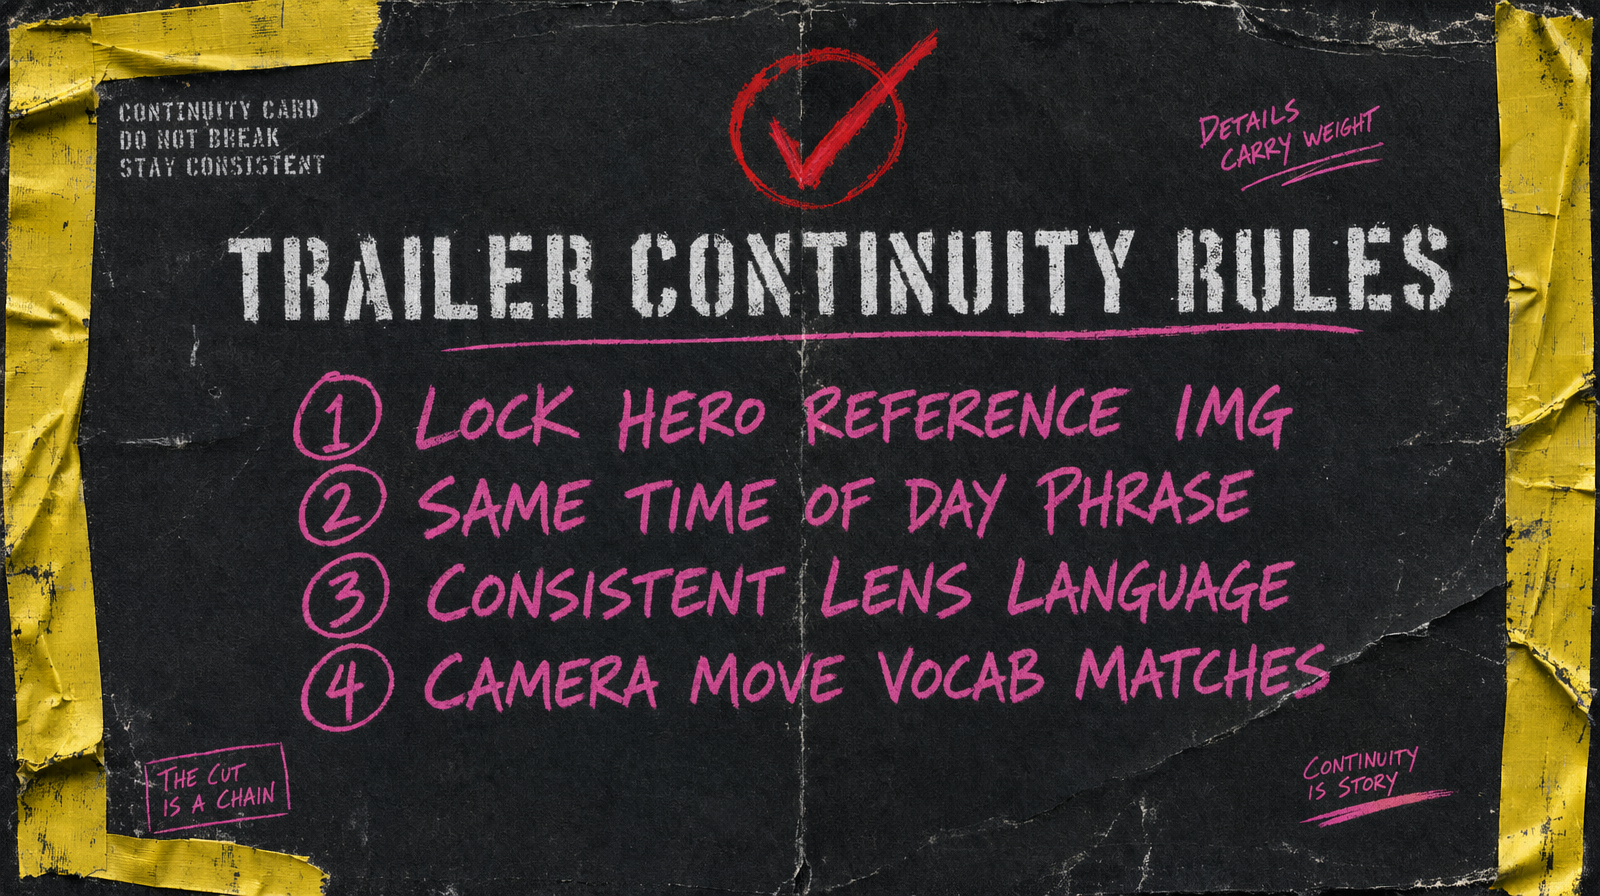 CONTINUITY CARD
DO NOT BREAK
STAY CONSISTENT
DETAILS
CARRY WEIGHT
TRAILER CONTINUITY RULES
1 LOCK HERO REFERENCE IMG
2 SAME TIME OF DAY PHRASE
3 CONSISTENT LENS LANGUAGE
4 CAMERA MOVE VOCAB MATCHES
THE CUT
IS A CHAIN
CONTINUITY
IS STORY